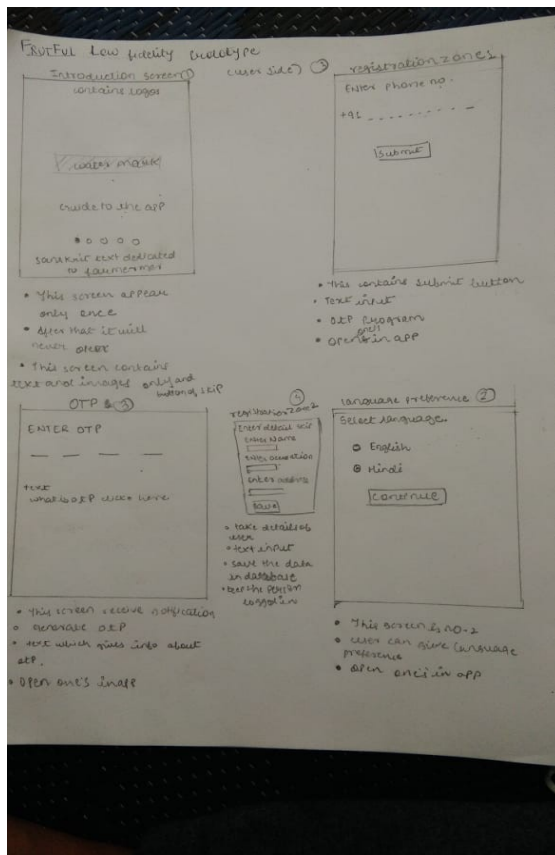 FRUTFUL Low fidelity prototype
(user side)
Introduction screen 1
contains logos
water mark
Guide to the app
sanskrit text dedicated
to farmer
• This screen appear
only once
• After that it will
never
• This screen contains
text and images only and
button of skip
3
registration zone 1
Enter phone no.
+91
Submit
• This contains submit button
• Text input
• OTP program
• Opens in app
OTP 3
ENTER OTP
text
what is OTP click here
• This screen receive notification
• generate OTP
• text which gives info about
otp.
• Open one's in app
registration zone 2
Enter detail skip
Enter Name
Enter
Enter address
Save
• take details of
user
• text input
• save the data
in database
• the person
logged in
language preference 2
Select language
English
Hindi
Continue
• This screen is no-2
• user can give language
preference
• Open one's in app